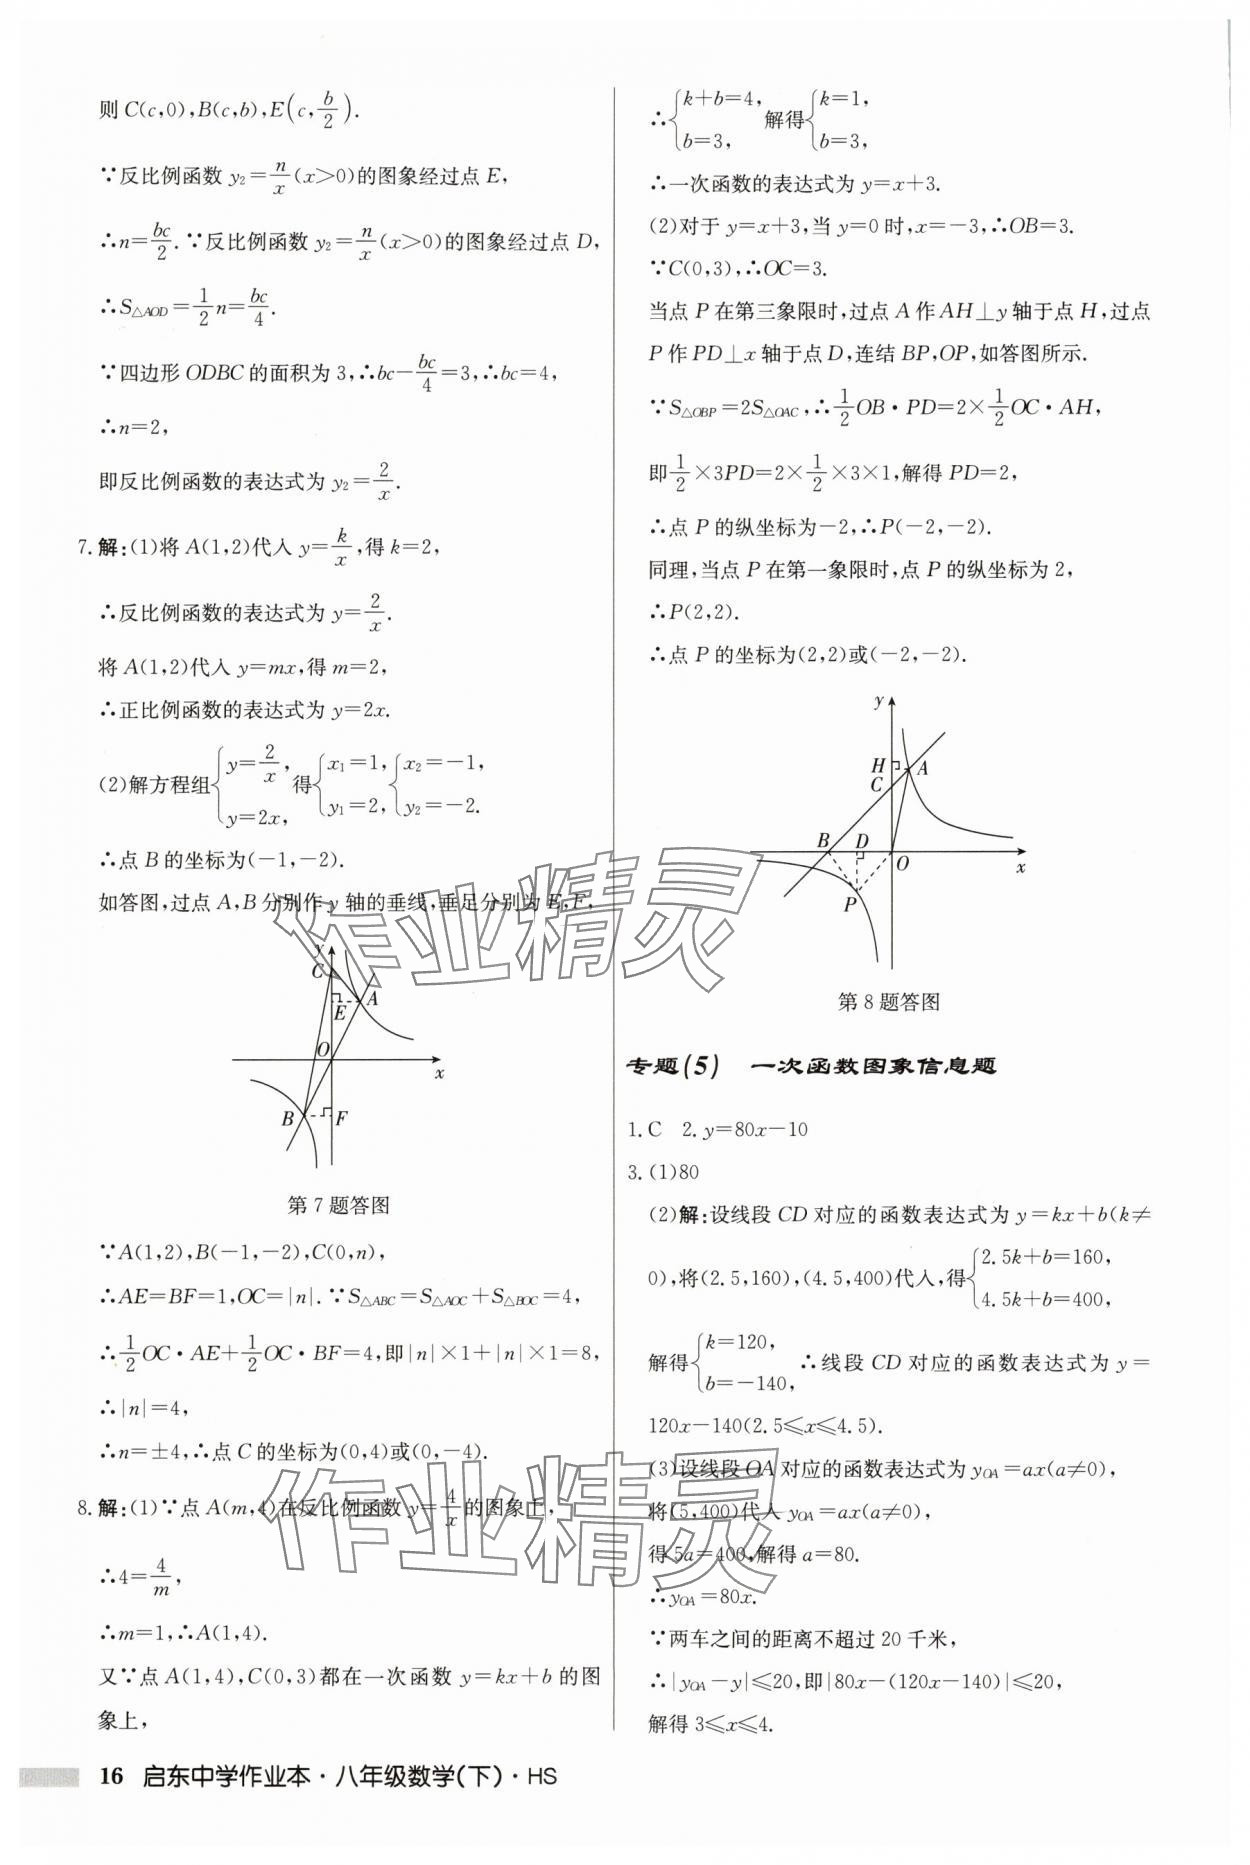 则 C(c,0),B(c,b),E(c,b/2).
∵反比例函数 y₂=n/x(x>0)的图象经过点 E,
∴n=bc/2.∵反比例函数 y₂=n/x(x>0)的图象经过点 D,
∴S△AOD=1/2n=bc/4.
∵四边形 ODBC 的面积为 3,∴bc-bc/4=3,∴bc=4,
∴n=2,
即反比例函数的表达式为 y₂=2/x.
7.解:(1)将 A(1,2)代入 y=k/x,得 k=2,
∴反比例函数的表达式为 y=2/x.
将 A(1,2)代入 y=mx,得 m=2,
∴正比例函数的表达式为 y=2x.
(2)解方程组{y=2/x, y=2x, 得{x₁=1, y₁=2, {x₂=-1, y₂=-2.
∴点 B 的坐标为(-1,-2).
如答图,过点 A,B 分别作 y 轴的垂线,垂足分别为 E,F,
y
C
A
E
O
x
B
F
第 7 题答图
∵A(1,2),B(-1,-2),C(0,n),
∴AE=BF=1,OC=|n|.∵S△ABC=S△AOC+S△BOC=4,
∴1/2OC·AE+1/2OC·BF=4,即|n|×1+|n|×1=8,
∴|n|=4,
∴n=±4,∴点 C 的坐标为(0,4)或(0,-4).
8.解:(1)∵点 A(m,4)在反比例函数 y=4/x的图象上,
∴4=4/m,
∴m=1,∴A(1,4).
又∵点 A(1,4),C(0,3)都在一次函数 y=kx+b 的图
象上,
∴{k+b=4, b=3, 解得{k=1, b=3,
∴一次函数的表达式为 y=x+3.
(2)对于 y=x+3,当 y=0 时,x=-3,∴OB=3.
∵C(0,3),∴OC=3.
当点 P 在第三象限时,过点 A 作 AH⊥y 轴于点 H,过点
P 作 PD⊥x 轴于点 D,连结 BP,OP,如答图所示.
∵S△OBP=2S△OAC,∴1/2OB·PD=2×1/2OC·AH,
即1/2×3PD=2×1/2×3×1,解得 PD=2,
∴点 P 的纵坐标为-2,∴P(-2,-2).
同理,当点 P 在第一象限时,点 P 的纵坐标为 2,
∴P(2,2).
∴点 P 的坐标为(2,2)或(-2,-2).
y
H
A
C
B
D
O
x
P
第 8 题答图
专题(5) 一次函数图象信息题
1.C 2.y=80x-10
3.(1)80
(2)解:设线段 CD 对应的函数表达式为 y=kx+b(k≠
0),将(2.5,160),(4.5,400)代入,得{2.5k+b=160, 4.5k+b=400,
解得{k=120, b=-140, ∴线段 CD 对应的函数表达式为 y=
120x-140(2.5≤x≤4.5).
(3)设线段 OA 对应的函数表达式为 yOA=ax(a≠0),
将(5,400)代入 yOA=ax(a≠0),
得 5a=400,解得 a=80.
∴yOA=80x.
∵两车之间的距离不超过 20 千米,
∴|yOA-y|≤20,即|80x-(120x-140)|≤20,
解得 3≤x≤4.
作业精灵
作业精灵
16 启东中学作业本·八年级数学(下)·HS